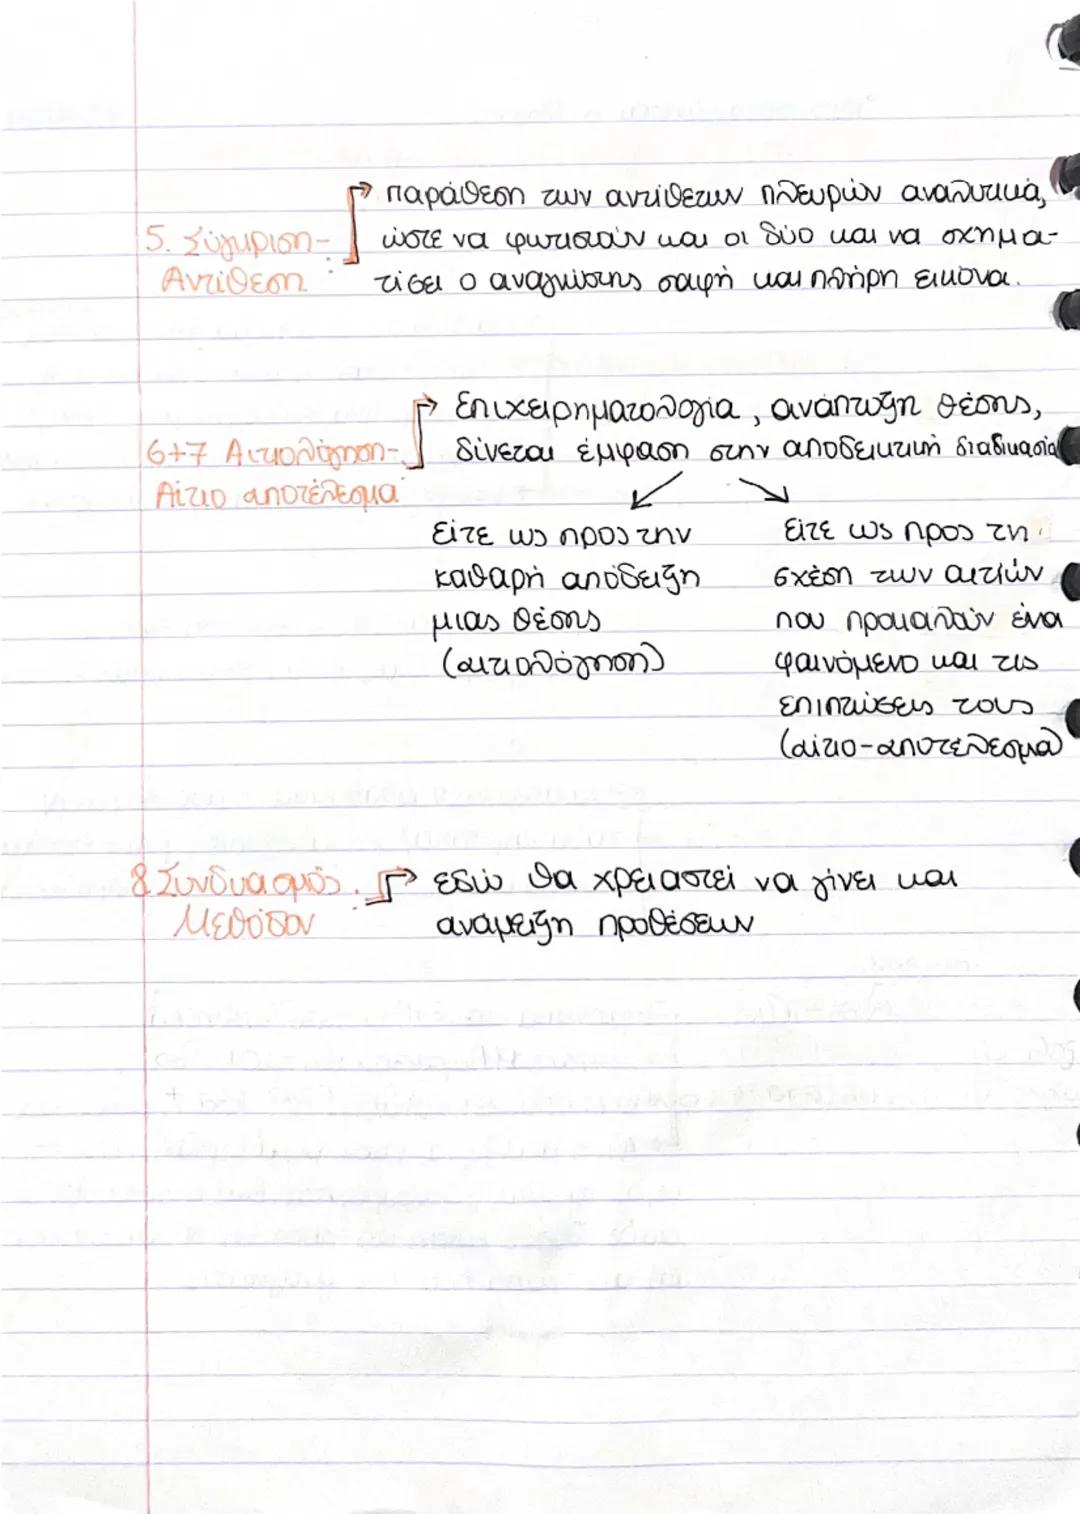 παράθεση των αντίθετων πλευρών αναλυτικά,
5. Σύγκριση- ώστε να φωτιστούν και οι δύο και να σχημα-
Αντίθεση: τίσει ο αναγνώστης σαφή και πλήρη εικόνα.
επιχειρηματολογία, ανάπτυξη θέσης,
6+7 Αιτιολόγηση- δίνεται έμφαση στην αποδεικτική διαδικασία
Αίτιο αποτέλεσμα:
είτε ως προς την
καθαρή απόδειξη
μιας θέσης
(αιτιολόγηση)
είτε ως προς τη
σχέση των αιτιών
που προκαλούν ένα
φαινόμενο και τις
επιπτώσεις τους
(αίτιο-αποτέλεσμα)
8. Συνδυασμός εδώ θα χρειαστεί να γίνει και
Μεθόδων: ανάμειξη προθέσεων